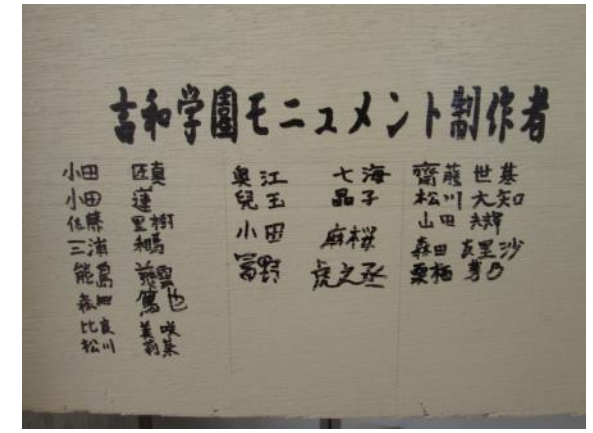 吉和学園モニュメント制作者
小田 匠真
小田 蓮
佐藤 里樹
三浦 和馬
能島
森田 篤也
比良 美咲
松川 莉菜
奥江 七海
兒玉 晶子
小田 麻桜
冨野 虎之丞
齋藤 世基
松川 大知
山田 夫輝
森田 友里沙
栗栖 芽乃